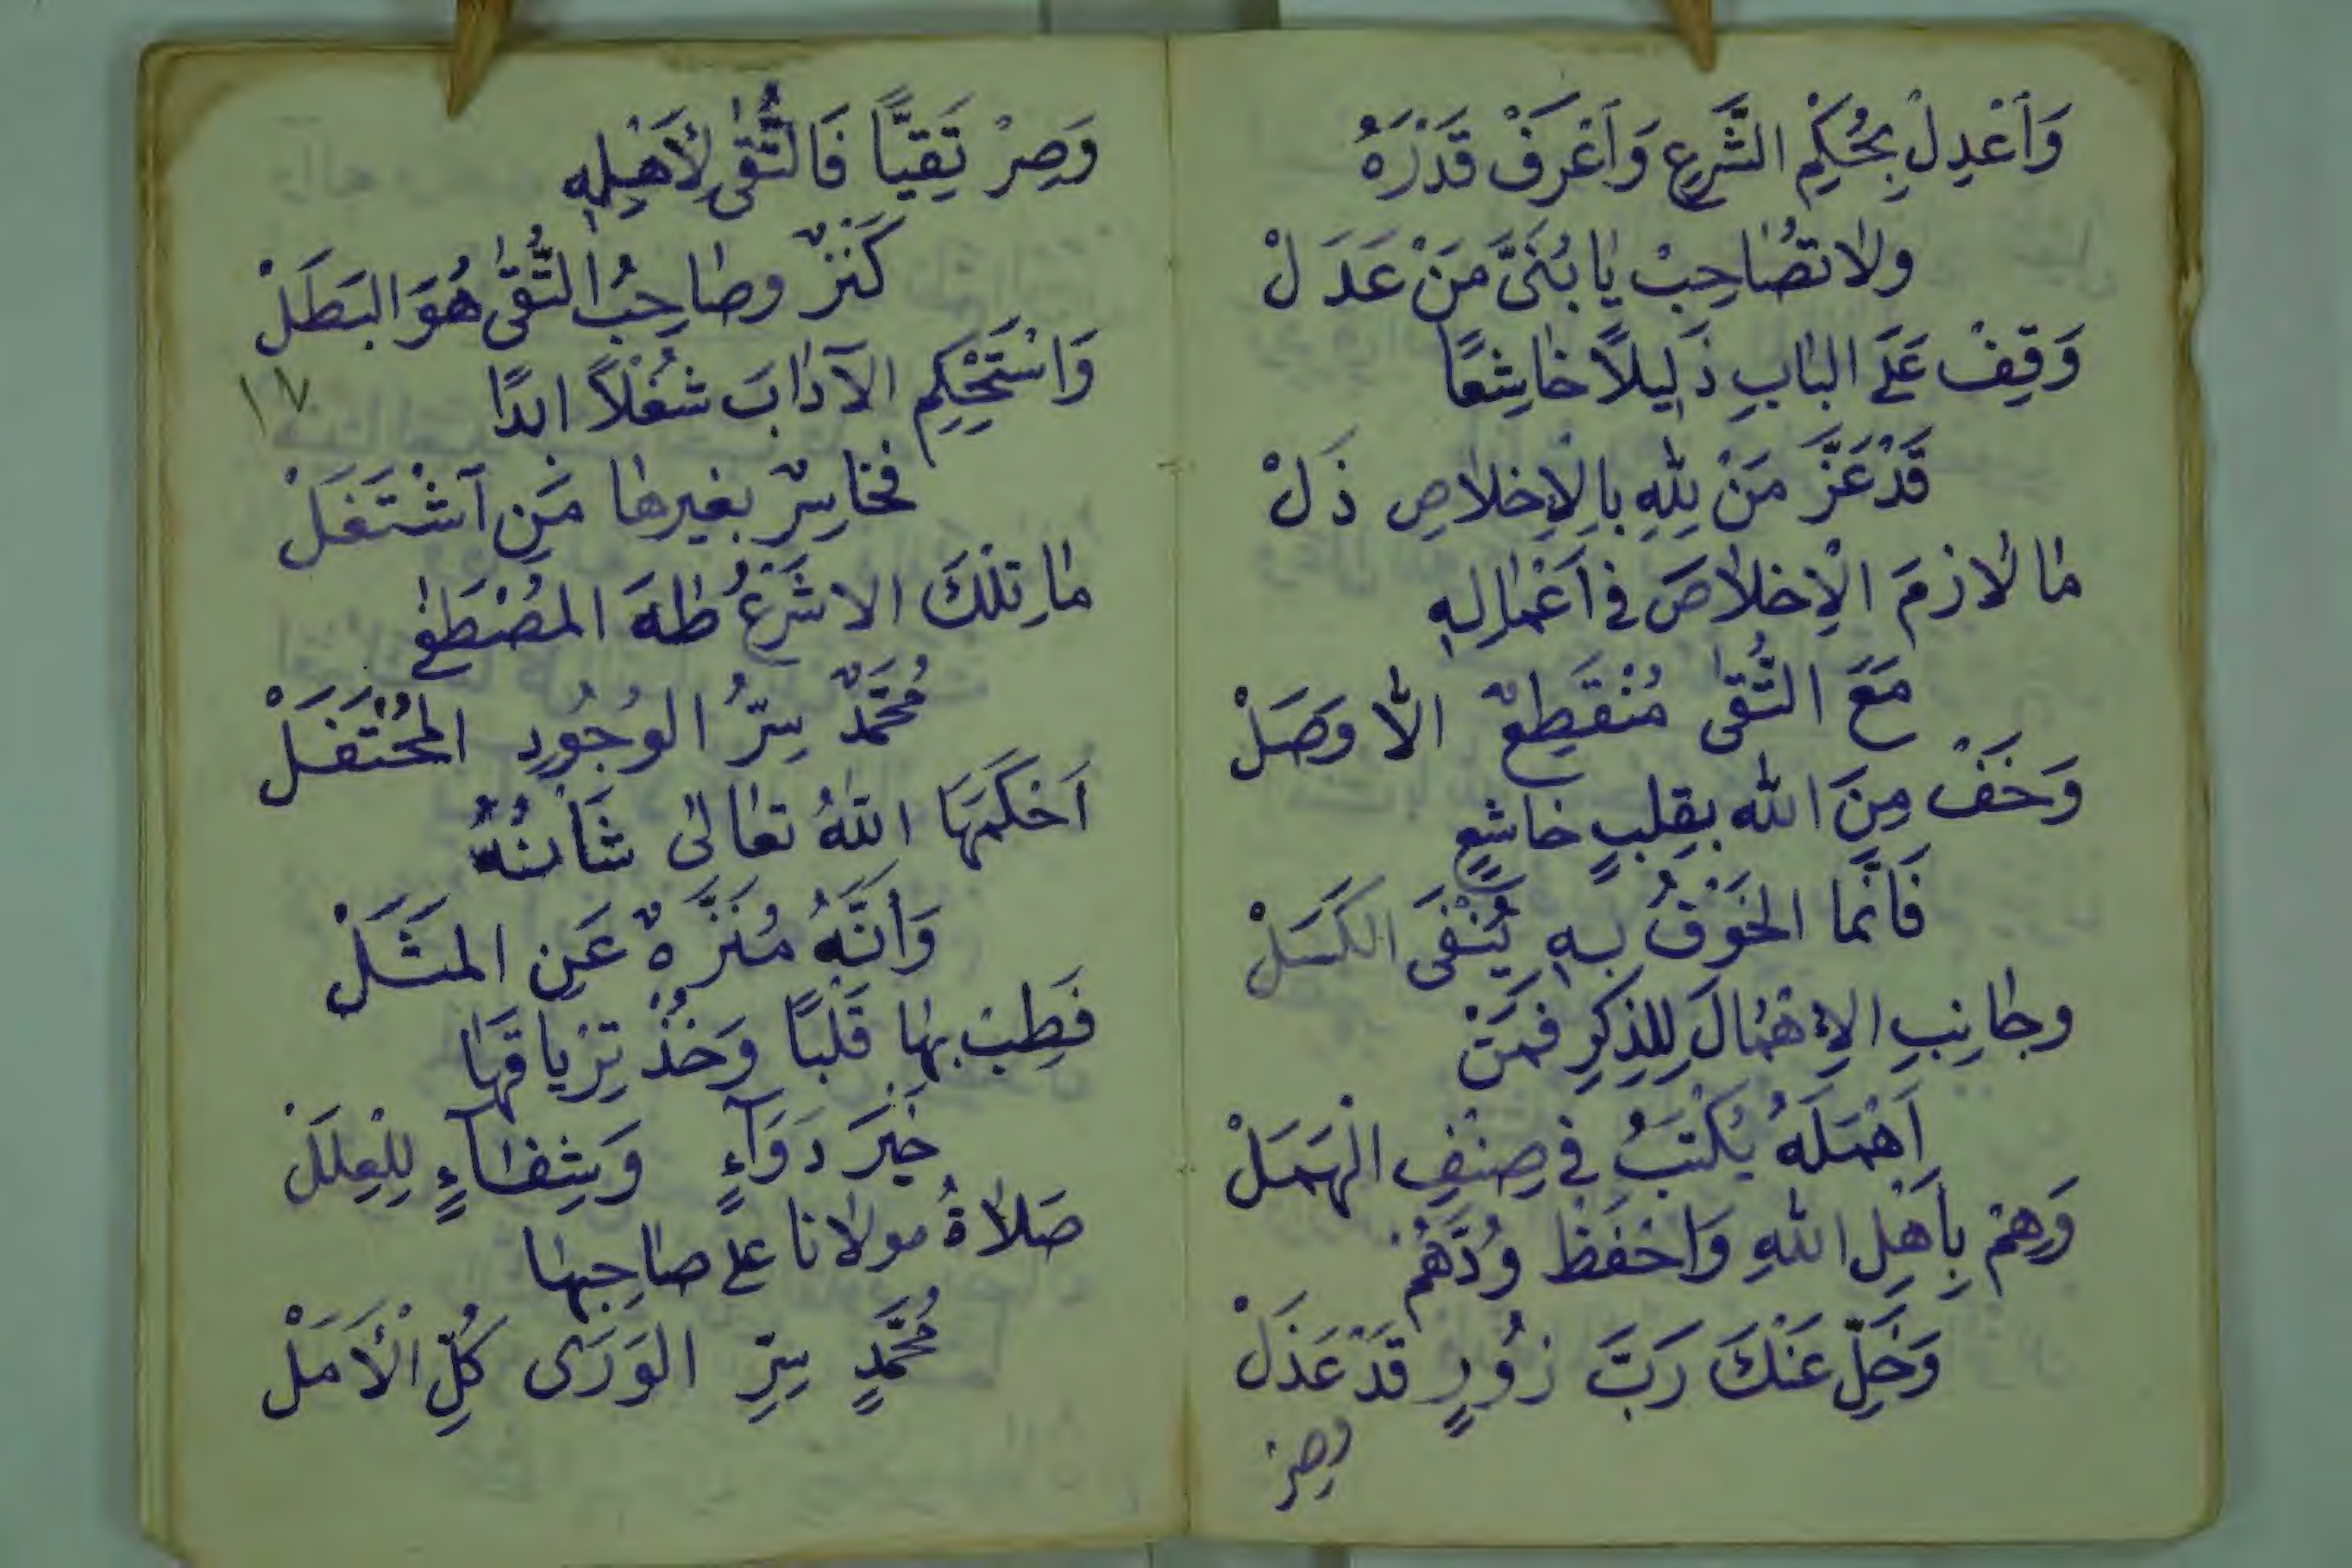 وَاَعْدِلْ بِحُكْمِ الشَّرْعِ وَاَعْرَفْ قَدْرَهُ
ولا تُصَاحِبْ يَا بُنَىَّ مَنْ عَدَلْ
وَقِفْ عَلَى البَابِ ذَلِيلاً خَاشِعًا
قَدْ عَزَّ مَنْ لِلهِ بِالاِخلاصِ ذَلْ
مَا لَازمَ الْاِخلاصَ فى اَعْمَالِهِ
مَعَ التُّقَى مُنْقَطِعٌ الاَّ وَصَلْ
وَخَفْ مِنَ اللّه بقلبٍ خاشعٍ
فَانَّما الخَوْفُ بهِ يُنْفَى الكَسَلْ
وجَانِبِ الاِهْمَالَ لِلذِكرِ فمَنْ
اَهْمَلَهُ يُكْتَبُ فى صِنْفِ الْهَمَلْ
وَهِمْ بِاَهْلِ اللّهِ وَاحْفَظْ وُدَّهُمْ
وَخَلِّ عَنْكَ رَبَّ زُورٍ قَدْ عَذَلْ
وصرْ
وَصِرْ تَقِيَّاً فَالتُّقَى لِأَهْلِهِ
كَنْزٌ وصَاحِبُ التُّقَى هُوَ البَطَلْ
١٧
وَاسْتَحْكِمِ الآدَابَ شُغْلاً ابدًا
فخاسِرٌ بغيرهَا مَنِ آشْتَغَلْ
مَا تِلْكَ الا شَرْعُ طٰهَ المُصْطَفٰى
مُحَمَّدٌ سِرُّ الوُجُودِ المُحْتَفَلْ
اَحْكَمَهَا اللّهُ تعَالىٰ شَأنُهُ
وَاَنَّهُ مُنَزَّهٌ عَنِ المَثَلْ
فَطِبْ بهَا قَلْبًا وَخُذْ تِرْياقَهَا
خَيْرَ دَوَآءٍ وَشِفَآءٍ لِلْعِلَلْ
صَلاةُ مولانا على صَاحِبهَا
مُحَمَّدٍ سِرِّ الوَرَى كُلِّ الْأَمَلْ